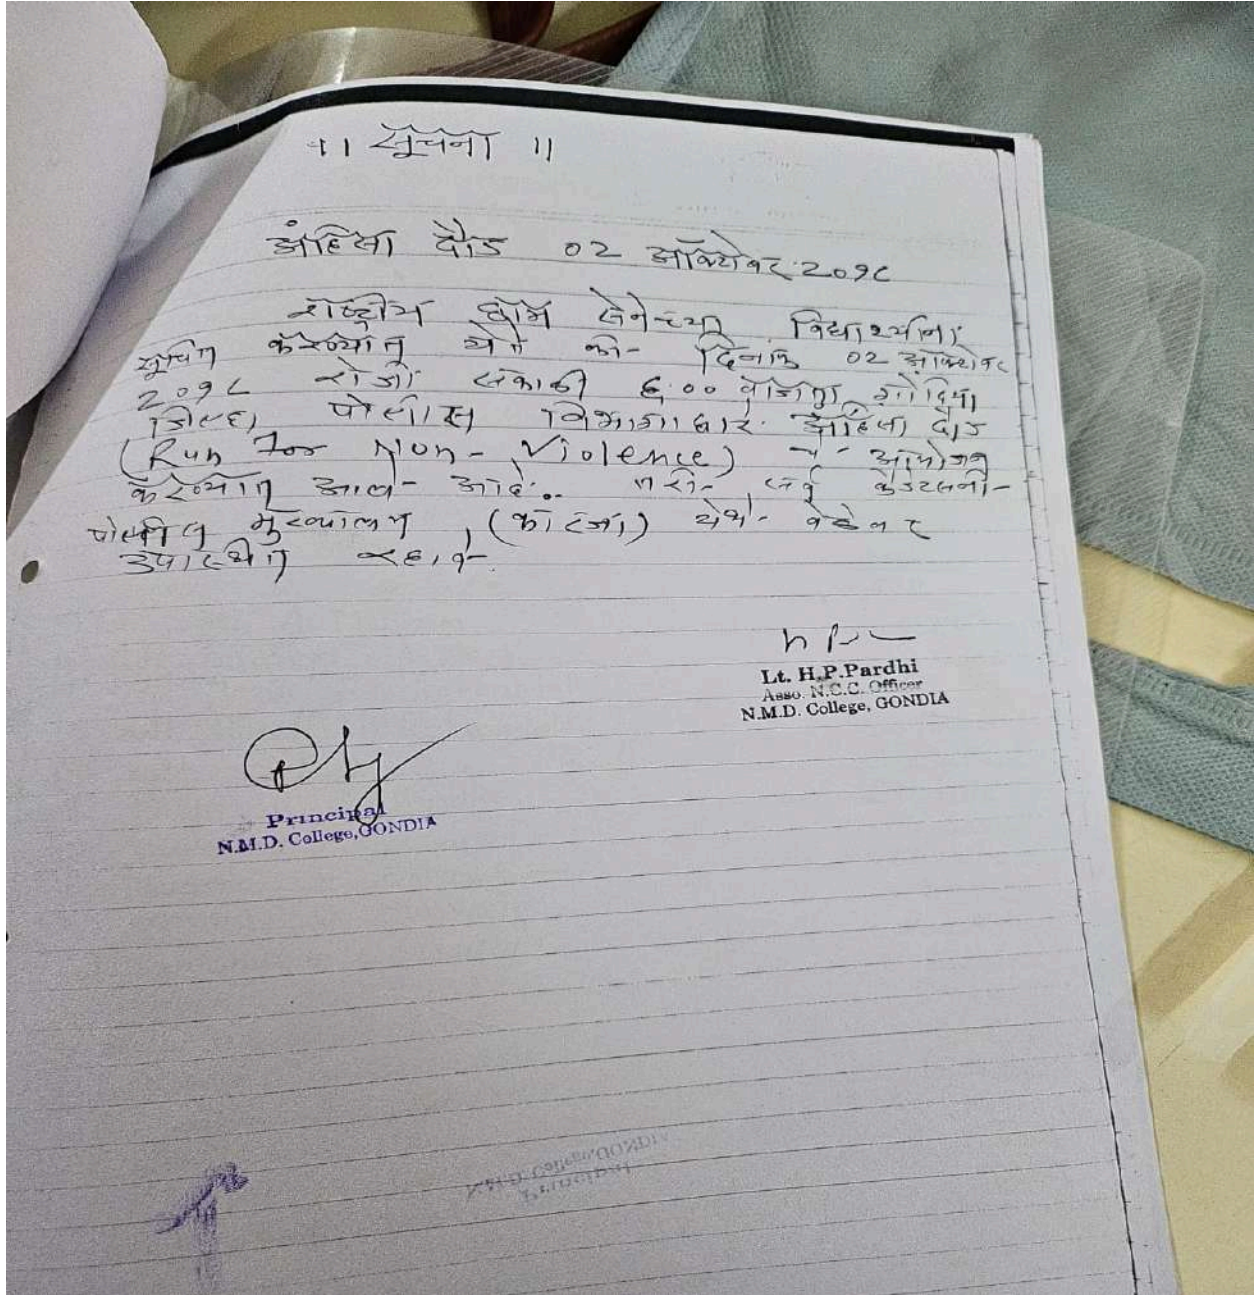 ।। सूचना ।।
अंहिसा दौड 02 ऑक्टोबर 2०१८
राष्ट्रीय छात्र सेनेच्या विद्यार्थ्यांना
सूचित करण्यात येते की- दिनांक 02 ऑक्टोबर
2०१८ रोजी सकाळी ६:०० वाजता गोंदिया
जिल्हा पोलीस विभागाद्वारे अंहिसा दौड
(Run For Non-Violence) चे आयोजन
करण्यात आले- आहे. तरी- सर्व कॅडेटसनी-
पोलीस मुख्यालय, (कारंजा) येथे- वेळेवर
उपस्थित रहावे-
Lt. H.P.Pardhi
Asso. N.C.C. Officer
N.M.D. College, GONDIA
Principal
N.M.D. College, GONDIA
N.M.D. College, GONDIA
Principal